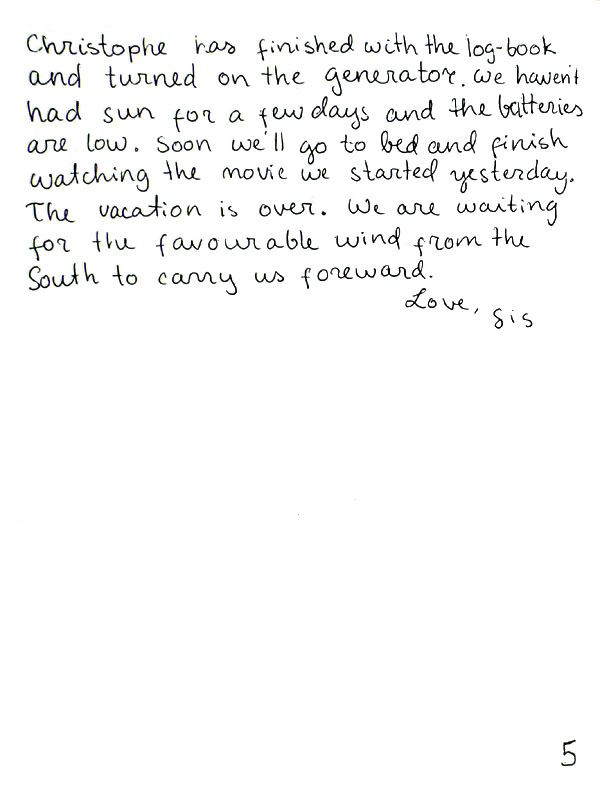 Christophe has finished with the log-book
and turned on the generator. We haven't
had sun for a few days and the batteries
are low. Soon we'll go to bed and finish
watching the movie we started yesterday.
The vacation is over. We are waiting
for the favourable wind from the
South to carry us foreward.
Love, Sis
5